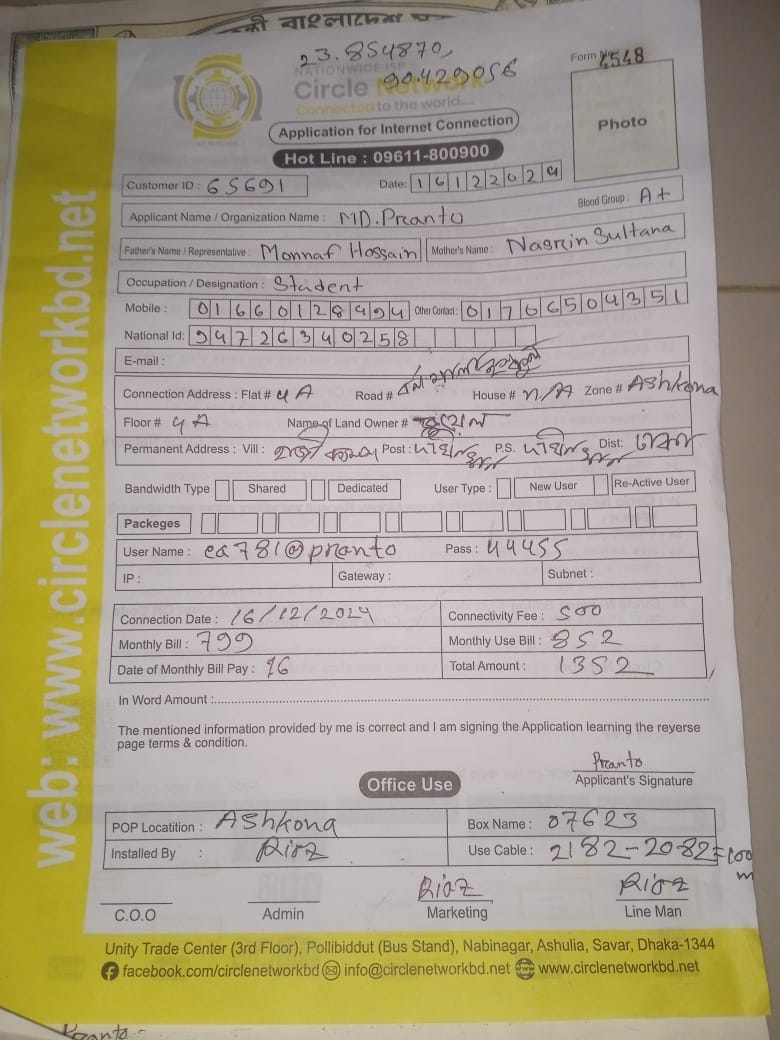 23.854870,
90.429056
Form No 4548
NATIONWIDE ISP
Circle Network
Connected to the world...
Application for Internet Connection
Photo
Hot Line : 09611-800900
Customer ID : 65691 Date: 16122024
Blood Group : A+
Applicant Name / Organization Name : MD. Pranto
Father's Name / Representative : Monnaf Hossain Mother's Name : Nasrin Sultana
Occupation / Designation : Student
Mobile : 01660128494 Other Contact : 01766504351
National Id: 94726340258
E-mail :
Connection Address : Flat # 4A Road # House # n/A Zone # Ashkona
Floor # 4A Name of Land Owner #
Permanent Address : Vill : Post : P.S. Dist:
Bandwidth Type Shared Dedicated User Type : New User Re-Active User
Packeges
User Name : ca781@pranto Pass : 44455
IP : Gateway : Subnet :
Connection Date : 16/12/2024 Connectivity Fee : 500
Monthly Bill : 799 Monthly Use Bill : 852
Date of Monthly Bill Pay : 16 Total Amount : 1352
In Word Amount :
The mentioned information provided by me is correct and I am signing the Application learning the reyerse
page terms & condition.
Pranto
Applicant's Signature
Office Use
POP Locatition : Ashkona Box Name : 07623
Installed By : Riaz Use Cable : 2182-2082=100
m
Riaz Riaz
C.O.O Admin Marketing Line Man
Unity Trade Center (3rd Floor), Pollibiddut (Bus Stand), Nabinagar, Ashulia, Savar, Dhaka-1344
facebook.com/circlenetworkbd info@circlenetworkbd.net www.circlenetworkbd.net
web: www.circlenetworkbd.net
Pranto